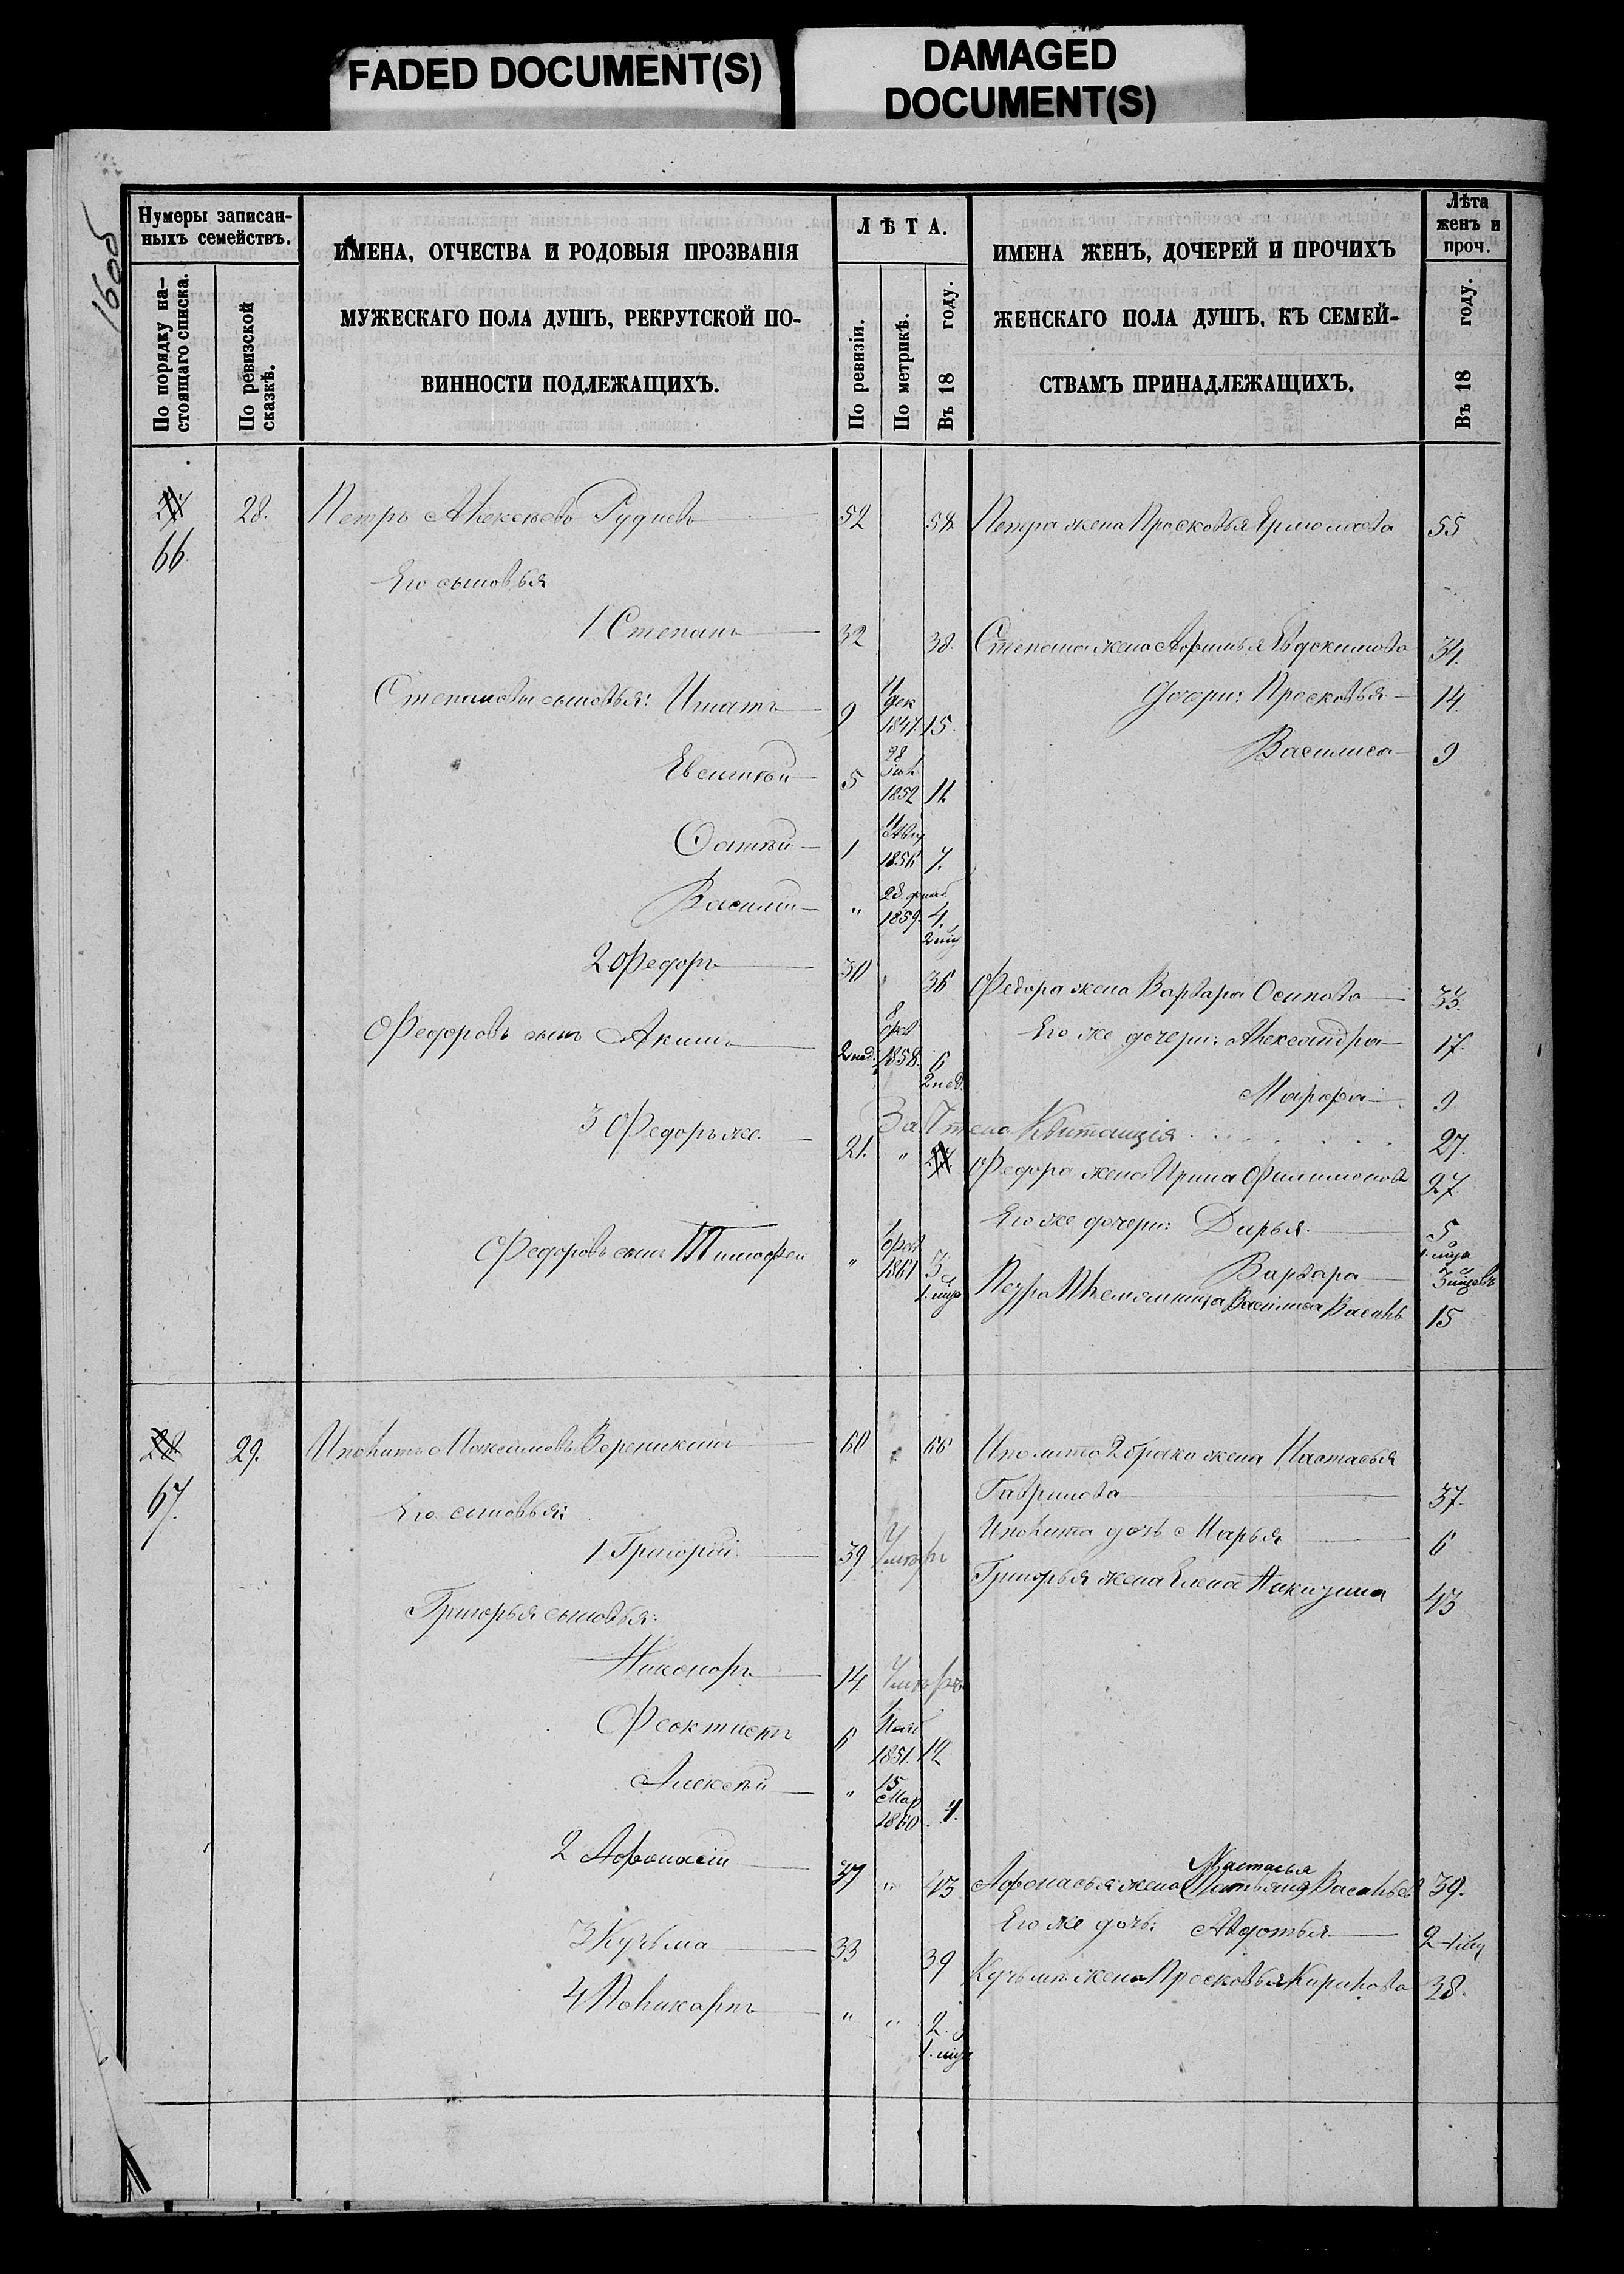 FADED DOCUMENT(S)
DAMAGED
DOCUMENT(S)
1605
Нумеры записан-
ныхъ семействъ.
По порядку на-
стоящаго списка.
По ревизской
сказкѣ.
ИМЕНА, ОТЧЕСТВА И РОДОВЫЯ ПРОЗВАНІЯ
МУЖЕСКАГО ПОЛА ДУШЪ, РЕКРУТСКОЙ ПО-
ВИННОСТИ ПОДЛЕЖАЩИХЪ.
ЛѢТА.
По ревизіи.
По метрикѣ.
Въ 18 году.
ИМЕНА ЖЕНЪ, ДОЧЕРЕЙ И ПРОЧИХЪ
ЖЕНСКАГО ПОЛА ДУШЪ, КЪ СЕМЕЙ-
СТВАМЪ ПРИНАДЛЕЖАЩИХЪ.
Лѣта
женъ и
проч.
Въ 18 году.
27 28. Петръ Алексѣевъ Рудневъ 52 58. Петра жена Прасковья Ермолаева 55
66.
Его сыновья
1 Степанъ 32 38. Степана жена Афимья Евдокимова 34.
Степановы сыновья: Игнатъ 9 дек 1847. 15. Дочери: Прасковья 14.
Евсигнѣй 5 28 Іюл 1852 11. Василиса 9
1 11 Авг 1856 7.
Василій " 28 1859. 4.
2 Федоръ 30 36 Федора жена Варвара Осипова 33.
Федоровъ сынъ Акимъ 2 нед. 8 фев 1858. 6 2 нед. Его же дочери: Александра 17.
Марфа 9
3 Федоръ же. 21. " 27. Зачтена Квитанція 27.
Федора жена Ирина Филимонова 27
Его же дочери: Дарья. 5
Федоровъ сынъ Тимофей " 1861 3 1. мца Варвара 3 мцовъ
Петра Племянница Василиса Васильев 15
28. 29. Иполитъ Максимовъ Вереникинъ 60 " 66 Иполита 2 брака жена Настасья
67. Гаврилова 37.
Его сыновья: Иполита дочь Марья 6
1 Григорій 39 Умеръ Григорья жена Елена Никизина 43
Григорья сыновья:
Никоноръ 14. Умеръ
Феоктистъ 6 Нояб 1851. 12
Алексѣй " 15 Мар 1860. 4.
2 Афонасій 37 " 43 Афонасья жена Татьяна Настасья Васильев 39.
Его же дочь: Авдотья 2
3 Кузьма 33 39 Кузьмы жена Прасковья Кирилова 38.
4 Поликарпъ " " 2. 1. мца